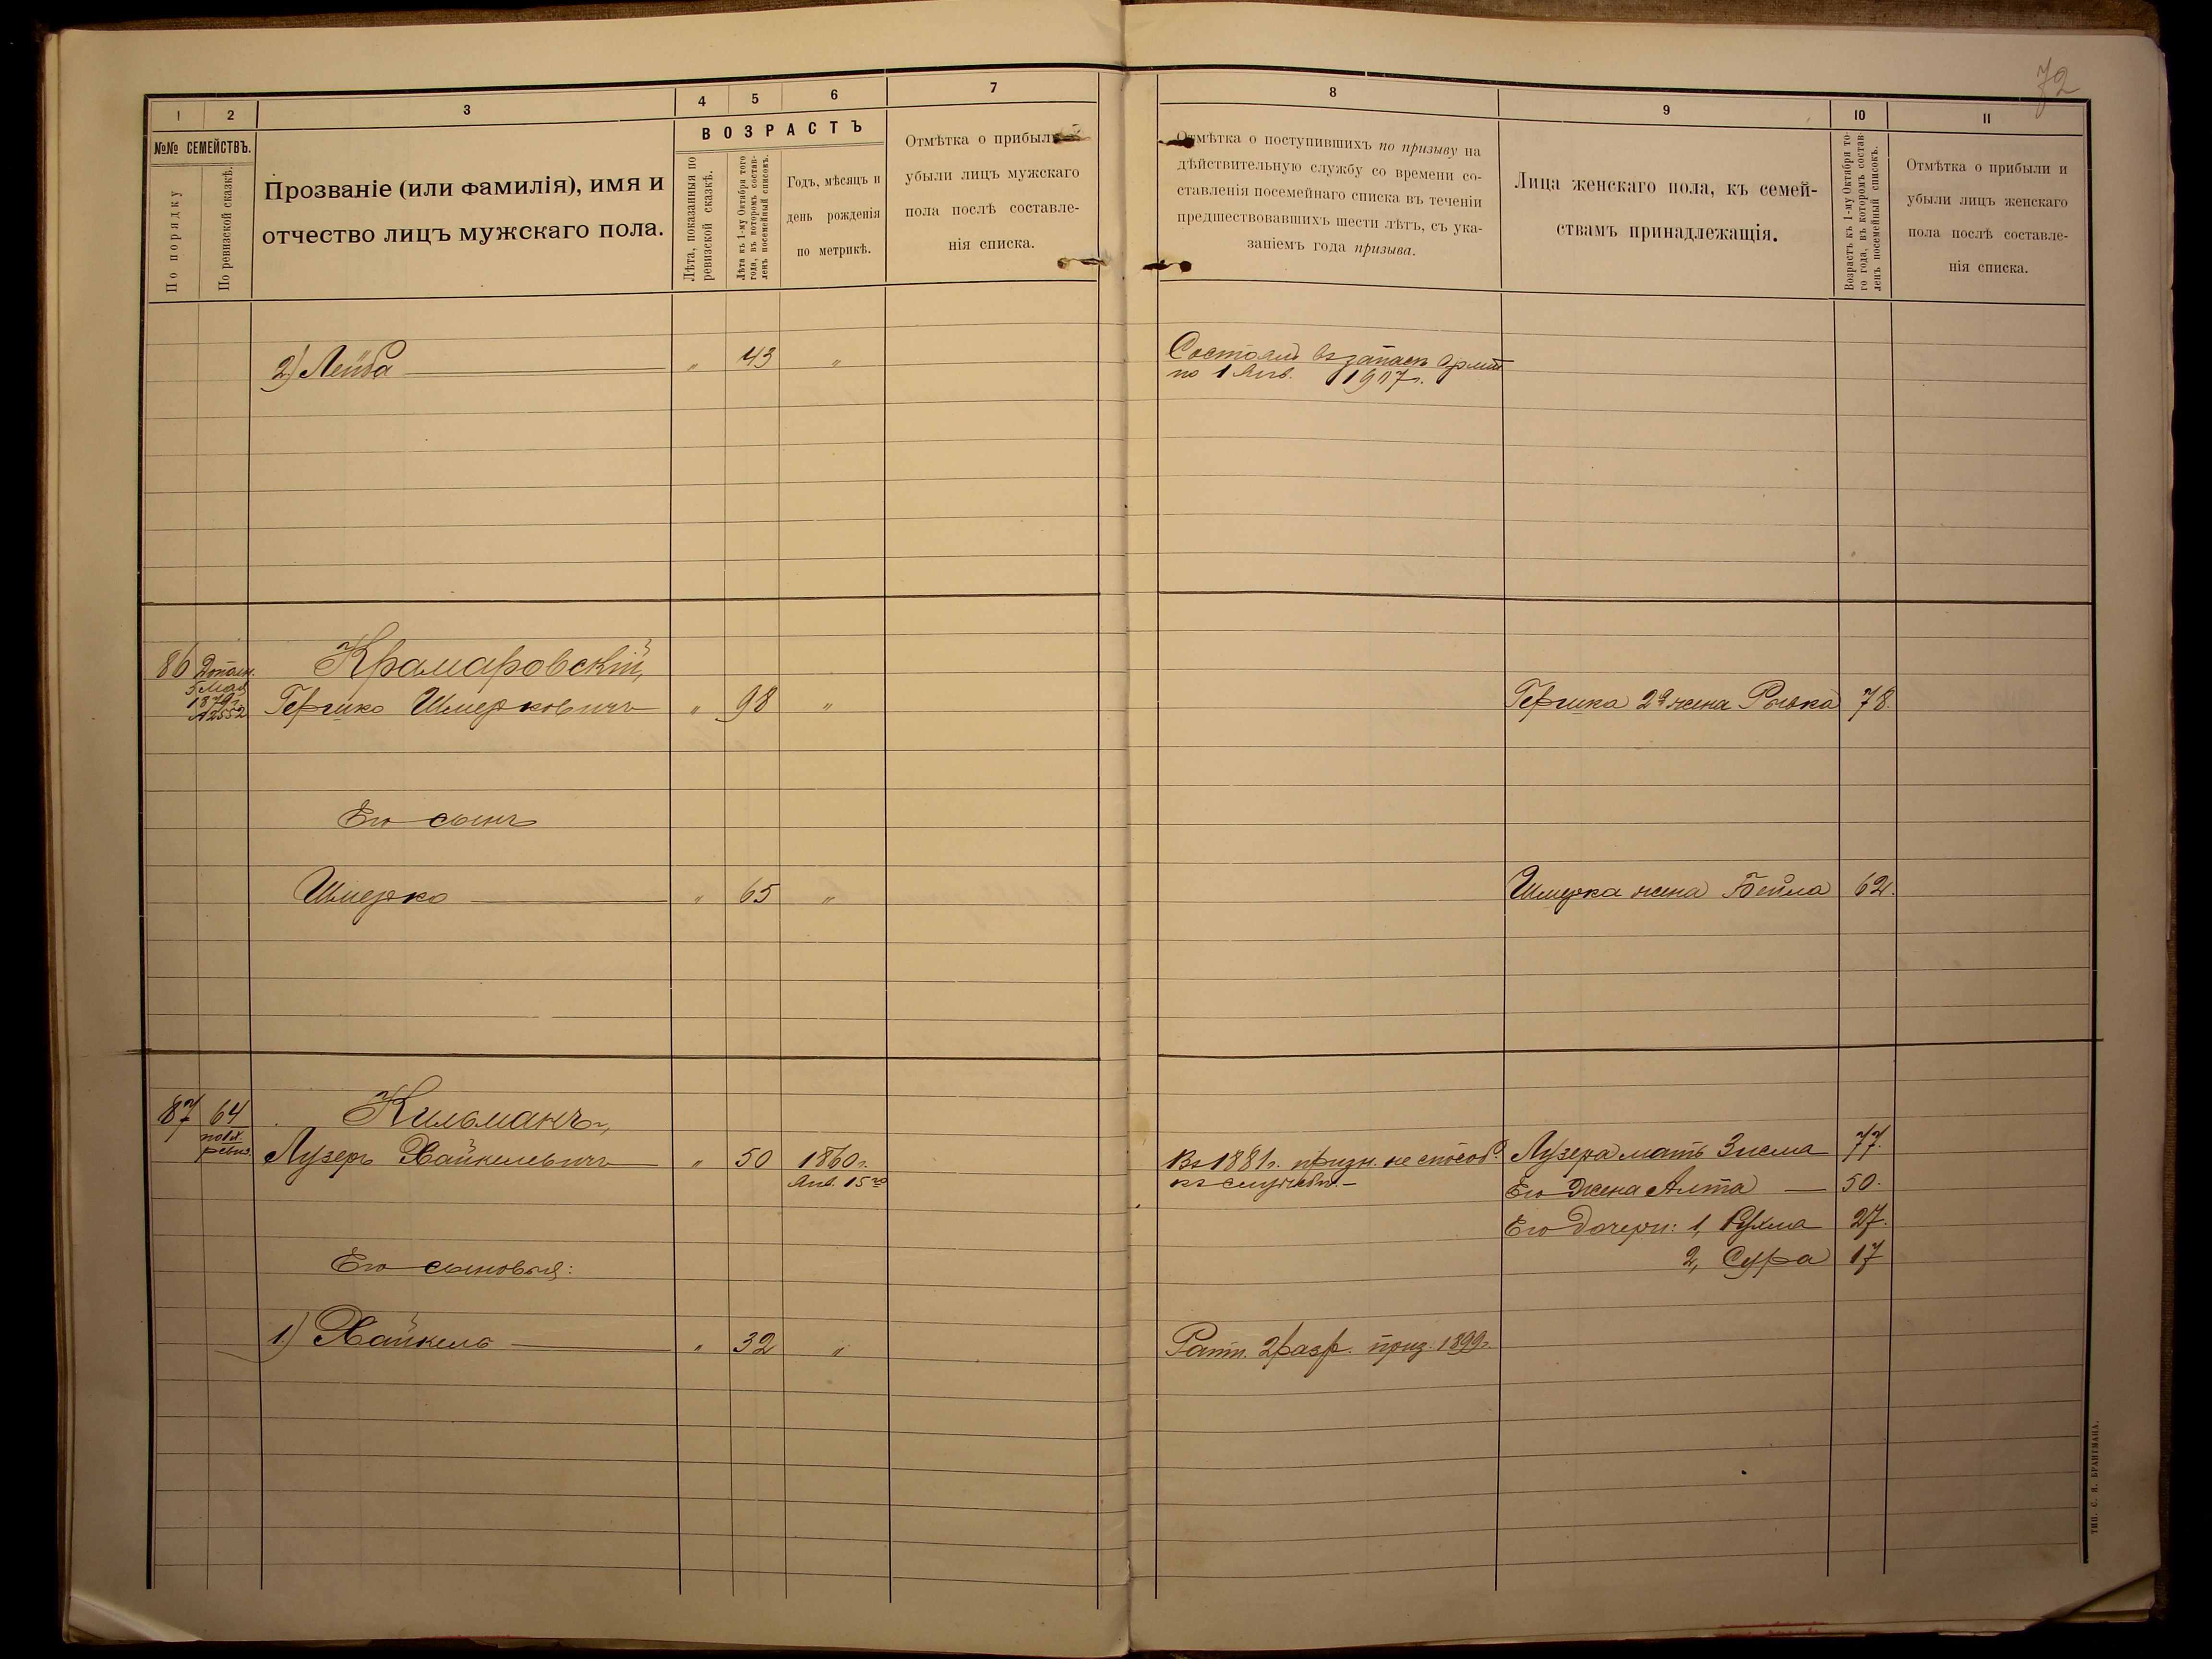 72
1
2
3
4
5
6
7
8
9
10
11
№№ СЕМЕЙСТВЪ.
По порядку
По ревизской сказкѣ.
Прозваніе (или фамилія), имя и
отчество лицъ мужскаго пола.
ВОЗРАСТЪ
Лѣта, показанныя по
ревизской сказкѣ.
Лѣта къ 1-му Октября того
года, въ которомъ состав-
ленъ посемейный списокъ.
Годъ, мѣсяцъ и
день рожденія
по метрикѣ.
Отмѣтка о прибыли
убыли лицъ мужскаго
пола послѣ составле-
нія списка.
Отмѣтка о поступившихъ по призыву на
дѣйствительную службу со времени со-
ставленія посемейнаго списка въ теченіи
предшествовавшихъ шести лѣтъ, съ ука-
заніемъ года призыва.
Лица женскаго пола, къ семей-
ствамъ принадлежащія.
Возрастъ къ 1-му Октября то-
го года, въ которомъ состав-
ленъ посемейный списокъ.
Отмѣтка о прибыли и
убыли лицъ женскаго
пола послѣ составле-
нія списка.
2) Лейба — " 43 " Состоялъ въ запасѣ арміи
по 1 Янв. 1907 г.
86 Дополн. Крамаровскій,
5 Мая
1879 г.
№2552 Гершко Шмерковичъ " 98 " Гершка 2я жена Рывка 78.
Его сынъ
Шмерко — " 65 " Шмерка жена Бейла 62.
87 64 Кильманъ,
по 8 х.
ревиз. Лузеръ Хайкелевичъ " 50 1860 г. Въ 1881 г. призн. не способ. Лузера мать Зисма 77.
Янв. 15го къ службѣ. — Его жена Алта — 50.
Его дочери: 1, Рухма 27.
2, Сура 17
Его сыновья:
1.) Хайкель — " 32 " Ратн. 2 разр. приз. 1899 г.
ТИП. С. Я. БРАНГМАНА.